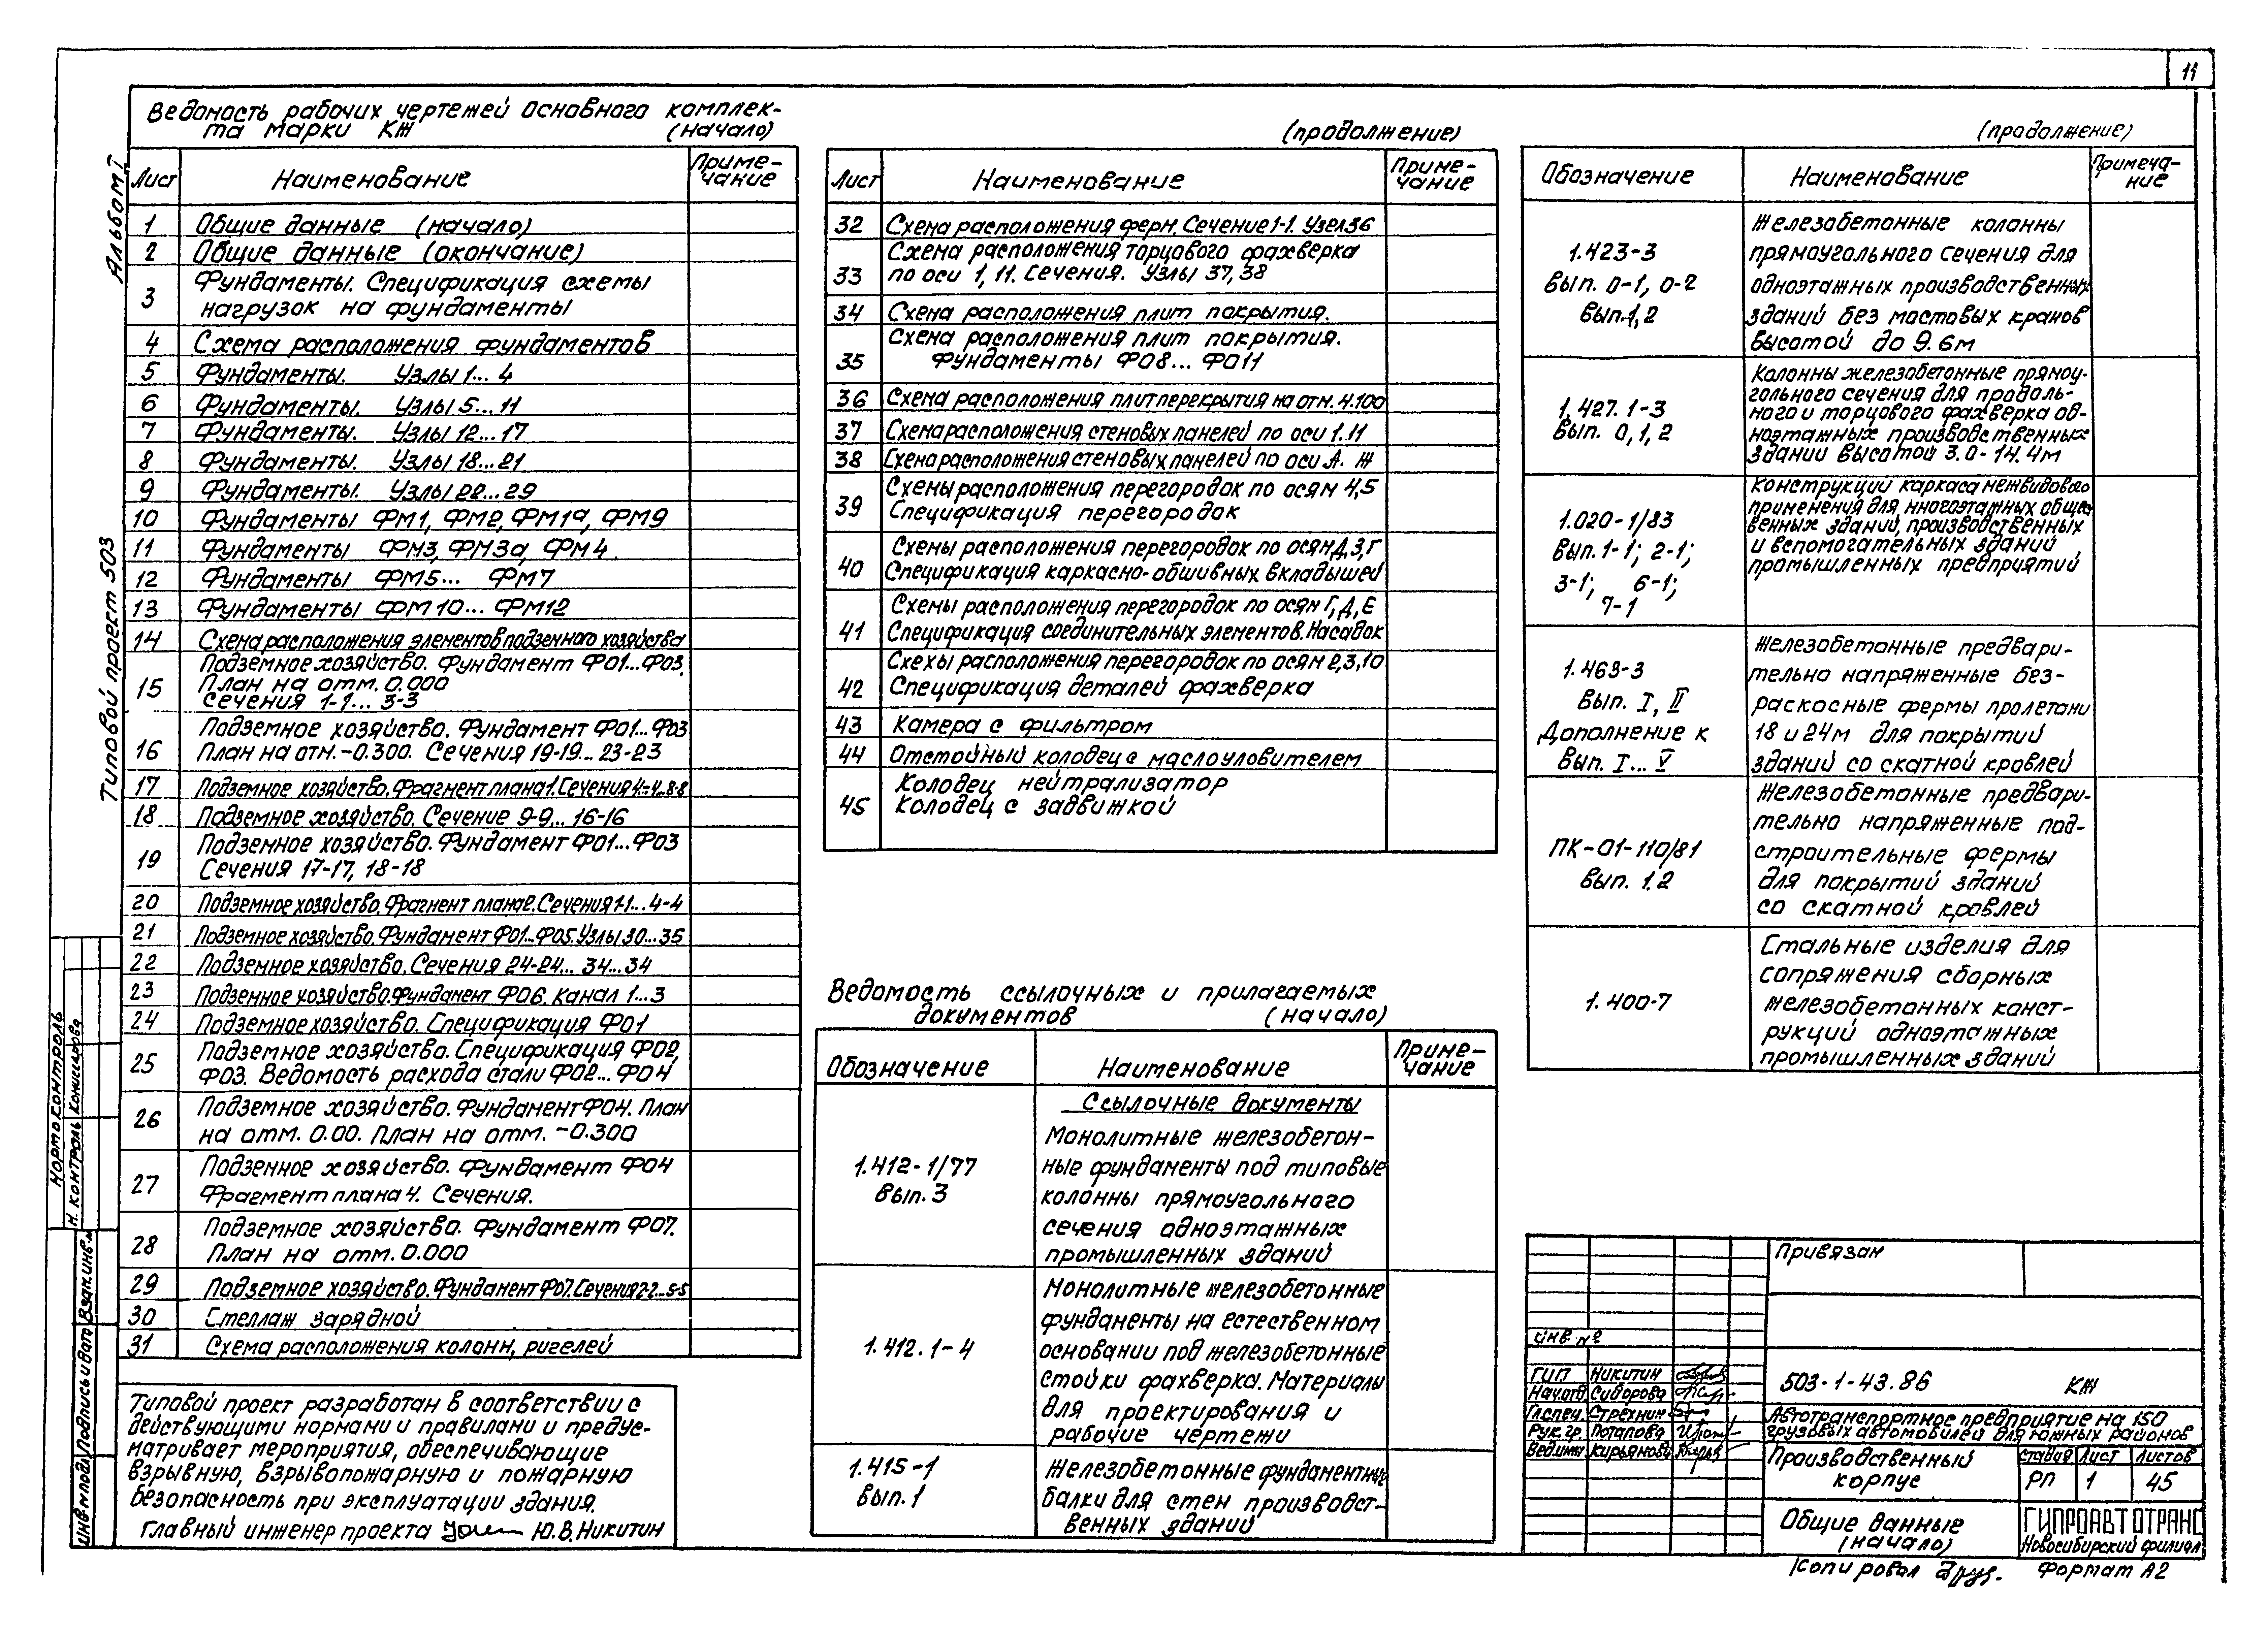 11
Альбом I
Типовой проект 503
Ведомость рабочих чертежей основного комплек-
та марки КЖ (начало)
Лист Наименование Приме-
чание
1 Общие данные (начало)
2 Общие данные (окончание)
3 Фундаменты. Спецификация схемы
нагрузок на фундаменты
4 Схема расположения фундаментов
5 Фундаменты. Узлы 1...4
6 Фундаменты. Узлы 5...11
7 Фундаменты. Узлы 12...17
8 Фундаменты. Узлы 18...21
9 Фундаменты. Узлы 22...29
10 Фундаменты ФМ1, ФМ2, ФМ1а, ФМ9
11 Фундаменты ФМ3, ФМ3а, ФМ4.
12 Фундаменты ФМ5... ФМ7
13 Фундаменты ФМ10... ФМ12
14 Схема расположения элементов подземного хозяйства
15 Подземное хозяйство. Фундамент ФО1...ФО3.
План на отм. 0.000
Сечения 1-1... 3-3
16 Подземное хозяйство. Фундамент ФО1...ФО3
План на отм.-0.300. Сечения 19-19... 23-23
17 Подземное хозяйство. Фрагмент плана 1. Сечения 4-4...8-8
18 Подземное хозяйство. Сечение 9-9... 16-16
19 Подземное хозяйство. Фундамент ФО1...ФО3
Сечения 17-17, 18-18
20 Подземное хозяйство. Фрагмент плана 2. Сечения 1-1... 4-4
21 Подземное хозяйство. Фундамент ФО1...ФО5. Узлы 30...35
22 Подземное хозяйство. Сечения 24-24... 34...34
23 Подземное хозяйство. Фундамент ФО6. Канал 1...3
24 Подземное хозяйство. Спецификация ФО1
25 Подземное хозяйство. Спецификация ФО2,
ФО3. Ведомость расхода стали ФО2...ФО4
26 Подземное хозяйство. Фундамент ФО4. План
на отм. 0.00. План на отм. -0.300
27 Подземное хозяйство. Фундамент ФО4
Фрагмент плана 4. Сечения.
28 Подземное хозяйство. Фундамент ФО7.
План на отм. 0.000
29 Подземное хозяйство. Фундамент ФО7. Сечения 2-2...5-5
30 Стеллаж зарядной
31 Схема расположения колонн, ригелей
Типовой проект разработан в соответствии с
действующими нормами и правилами и предус-
матривает мероприятия, обеспечивающие
взрывную, взрывопожарную и пожарную
безопасность при эксплуатации здания.
Главный инженер проекта Ю.В. Никитин
(продолжение)
Лист Наименование Приме-
чание
32 Схема расположения ферм. Сечение 1-1. Узел 36
33 Схема расположения торцового фахверка
по оси 1, 11. Сечения. Узлы 37, 38
34 Схема расположения плит покрытия.
35 Схема расположения плит покрытия.
Фундаменты ФО8... ФО11
36 Схема расположения плит перекрытия на отм. 4.100
37 Схема расположения стеновых панелей по оси 1.11
38 Схема расположения стеновых панелей по оси А. Ж
39 Схемы расположения перегородок по осям 4,5
Спецификация перегородок
40 Схемы расположения перегородок по осям Д, 3, Г
Спецификация каркасно-обшивных вкладышей
41 Схемы расположения перегородок по осям Г, Д, Е
Спецификация соединительных элементов. Насадок
42 Схехы расположения перегородок по осям 2,3,10
Спецификация деталей фахверка
43 Камера с фильтром
44 Отстойный колодец с маслоуловителем
45 Колодец нейтрализатор
Колодец с задвижкой
Ведомость ссылочных и прилагаемых
документов (начало)
Обозначение Наименование Приме-
чание
Ссылочные документы
1.412-1/77
вып. 3
Монолитные железобетон-
ные фундаменты под типовые
колонны прямоугольного
сечения одноэтажных
промышленных зданий
1.412.1-4
Монолитные железобетонные
фундаменты на естественном
основании под железобетонные
стойки фахверка. Материалы
для проектирования и
рабочие чертежи
1.415-1
вып. 1
Железобетонные фундаментные
балки для стен производст-
венных зданий
(продолжение)
Обозначение Наименование Примеча-
ние
1.423-3
вып. 0-1, 0-2
вып. 1, 2
Железобетонные колонны
прямоугольного сечения для
одноэтажных производственных
зданий без мостовых кранов
высотой до 9.6м
1.427.1-3
вып. 0, 1, 2
Колонны железобетонные прямоу-
гольного сечения для продоль-
ного и торцового фахверка од-
ноэтажных производственных
зданий высотой 3.0-14.4м
1.020-1/83
вып. 1-1; 2-1;
3-1; 6-1;
7-1
Конструкции каркаса межвидового
применения для многоэтажных общест
венных зданий, производственных
и вспомогательных зданий
промышленных предприятий
1.463-3
вып. I, II
Дополнение к
вып. I... V
Железобетонные предвари-
тельно напряженные без-
раскосные фермы пролетами
18 и 24м для покрытий
зданий со скатной кровлей
ПК-01-110/81
вып. 1.2
Железобетонные предвари-
тельно напряженные под-
строительные фермы
для покрытий зданий
со скатной кровлей
1.400-7
Стальные изделия для
сопряжения сборных
железобетонных конст-
рукций одноэтажных
промышленных зданий
Привязан
инв. №
ГИП Никитин
Нач.отд Сидорова
Гл.спец. Стрехнин
Рук.гр. Потапова
Вед.инж Кирьянова
503-1-43.86 КЖ
Автотранспортное предприятие на 150
грузовых автомобилей для южных районов
Производственный
корпус
Стадия Лист Листов
РП 1 45
Общие данные
(начало)
ГИПРОАВТОТРАНС
Новосибирский филиал
Копировал
Формат А2
Нормоконтроль
Н. контроль Комиссарова
Взам.инв.№
Подпись и дата
Инв.№подл